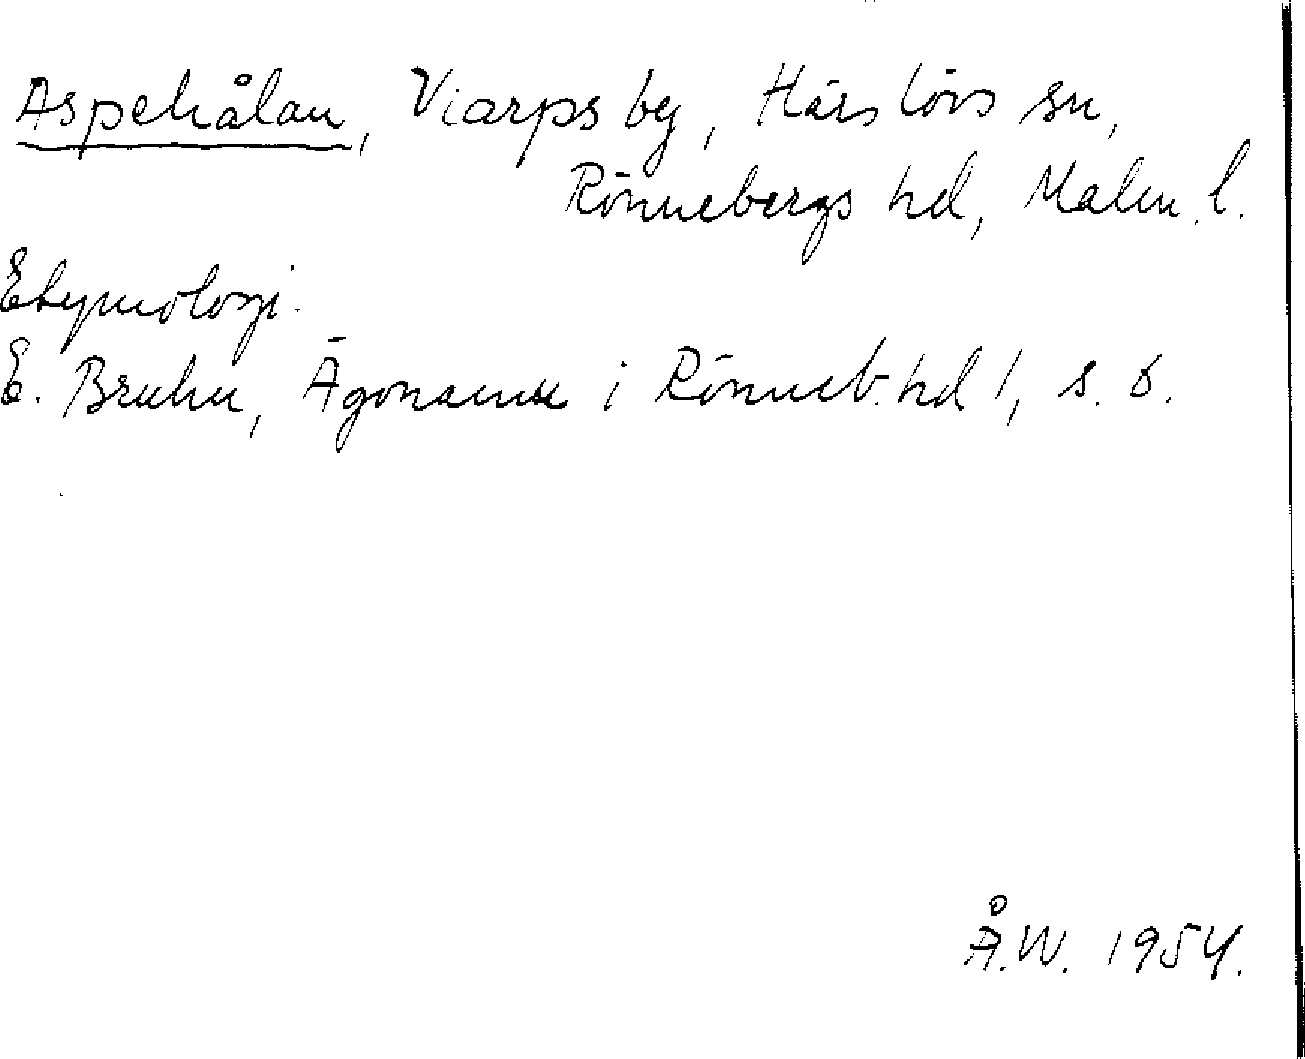 Aspehålan, Viarps by, Härslövs sn,
Rönnebergs hd, Malm. l.
Etymologi.
E. Bruhn, Ägonamn i Rönneb. hd 1, s. 6.
Å.W. 1954.